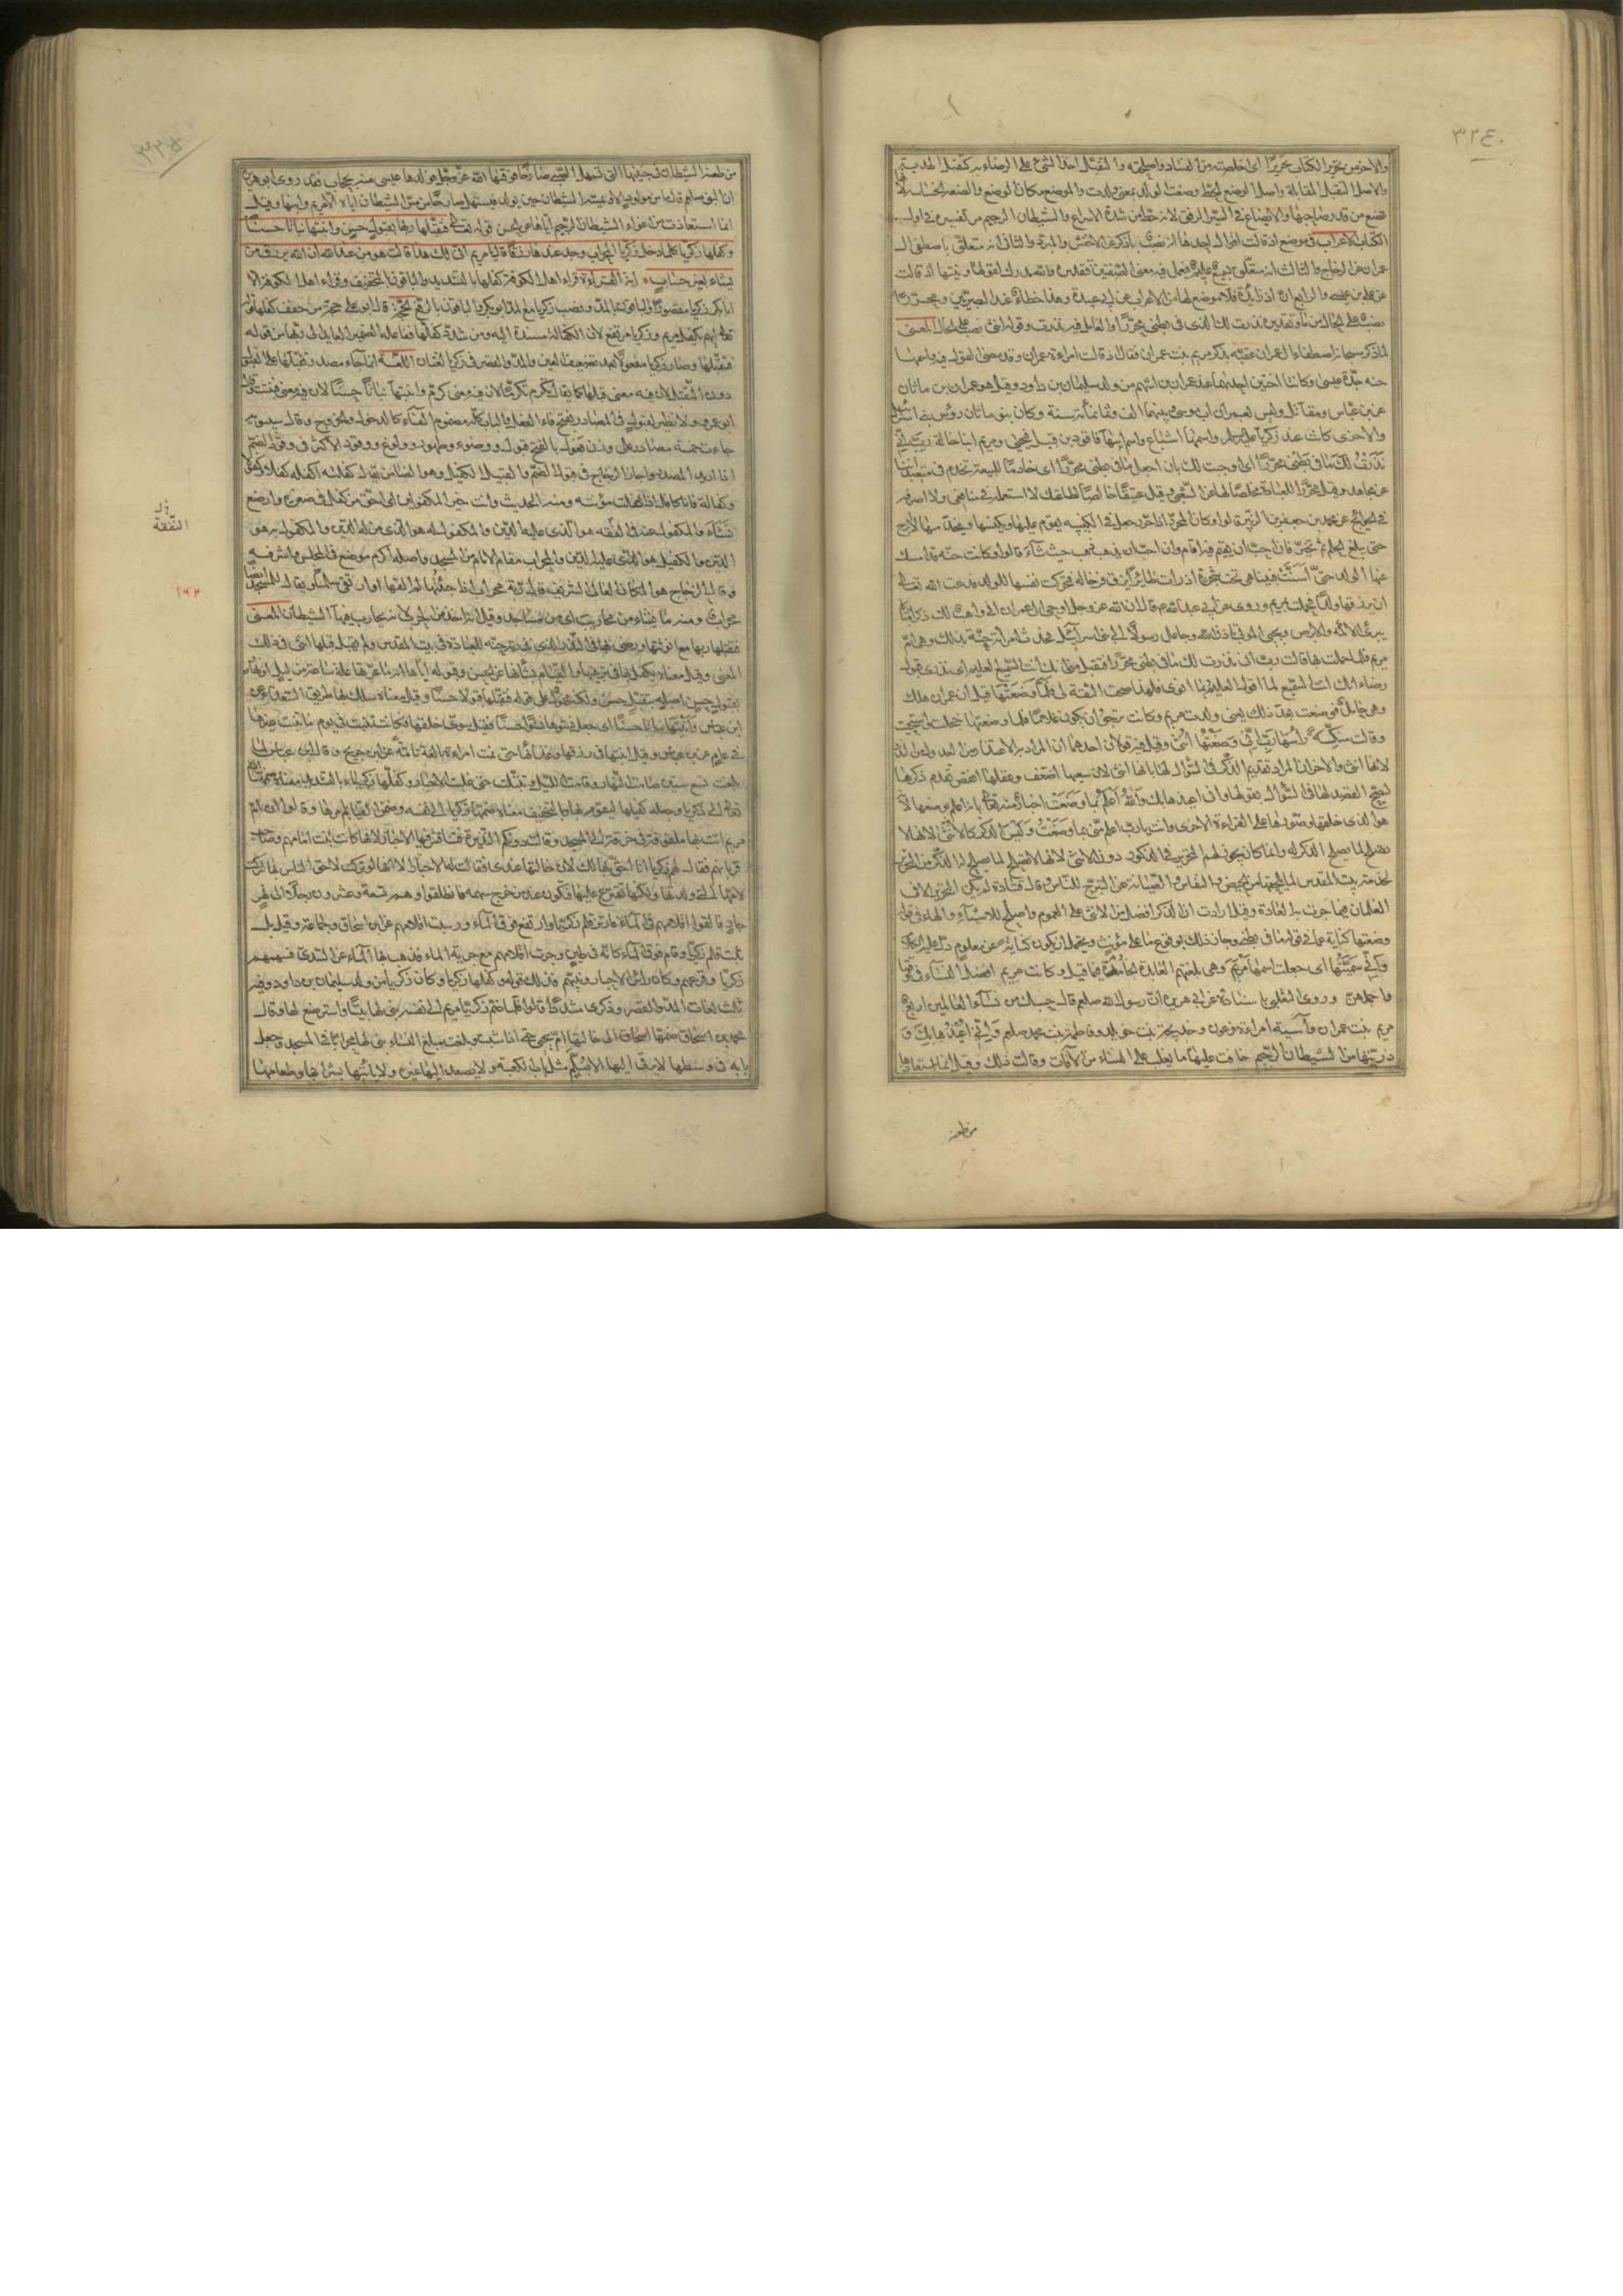 ٣٢٤
والاخر من تحرير الكتاب تحريرا اى اخلصته من الفساد واصلحته والتقبل اخذ الشئ على الرضاء به كتقبل الهدية
والاصل التقبل المقابلة واصل الوضع الحط وضعت الولد بمعنى ولدت والموضع مكان الوضع والضعة الخساسة لانها
تضع من قدر صاحبها والايضاع فى السير الرفق لانه حط من شدة الاسراع والشيطان الرجيم مر تفسيره فى اول
الكتاب الاعراب فى موضع اذ قالت اقوال احدها انه نصب باذكر عن الاخفش والمبرد والثانى انه متعلق باصطفى ال
عمران عن الزجاج والثالث انه متعلق بسميع عليم فيعمل فيه معنى الصفتين تقديره والله مدرك لقولها ونيتها اذ قالت
عن على بن عيسى والرابع ان اذ زايدة فلا موضع لها من الاعراب عن ابى عبيدة وهذا خطاء عند البصريين ومحررا
نصب على الحال من ما وتقديره نذرت لك الذى فى بطنى محررا والعامل فيه نذرت وقوله انثى نصب على الحال المعنى
لما ذكر سبحانه اصطفاء ال عمران عقبه بذكر مريم بنت عمران فقال اذ قالت امراة عمران وقد مضى القول فيه واسمها
حنه جدة عيسى وكانتا اختين احديهما عند عمران بن الهثم من ولد سليمان بن داود وقيل هو عمران بن ماثان
عن ابن عباس ومقاتل وليس بعمران ابى موسى وبينهما الف وثمانمائة سنة وكان بنو ماثان رؤس بنى اسرائيل
والاخرى كانت عند زكريا واسمها اشياع واسم ابيها قاقود بن قبيل فيحيى ومريم ابنا خالة رب انى
نذرت لك ما فى بطنى محررا اى اوجبت لك بان اجعل ما فى بطنى محررا اى خادما للبيعة يخدم فى متعبداتنا
عن مجاهد وقيل محررا للعبادة مخلصا لها عن الشعبى وقيل عتيقا خالصا لطاعتك لا استعمله فى منافعى ولا اصرفه
فى الحوائج عن محمد بن جعفر بن الزبير قالوا وكان المحرر اذا حرر جعل فى الكنيسة يقوم عليها ويكنسها ويخدمها لا يبرح
حتى يبلغ الحلم ثم تخير فان احب ان يقيم فيه اقام وان احب ان يذهب ذهب حيث شاء قالوا وكانت حنه قد امسك
عنها الولد حتى اسنت فبينا هى تحت شجرة اذ رات طائرا يزق فرخا له فتحركت نفسها للولد فدعت الله تعالى
ان يرزقها ولدا فحملت بمريم وروى عن ابى عبد الله ع قال ان الله عز وجل اوحى الى عمران انى واهب لك ذكرا
يبرئ الاكمه والابرص ويحيى الموتى باذن الله وجاعله رسولا الى بنى اسرائيل فحدث امراته حنة بذلك وهى ام
مريم فلما حملت بها قالت رب انى نذرت لك ما فى بطنى محررا فتقبل منى انك انت السميع العليم اى نذرى قبول
رضاء انك انت السميع لما اقول العليم بما انوى فلهذا صحت الثقة لى فلما وضعتها قيل ان عمران هلك
وهى حامل فوضعت بعد ذلك يعنى ولدت مريم وكانت ترجو ان يكون غلاما فلما وضعتها خجلت واستحيت
وقالت منكسة راسها رب انى وضعتها انثى وقيل فيه قولان احدهما ان المراد به الاعتذار من العدول عن النذر
لانها انثى والاخر ان المراد تقديم الذكر فى السؤال لها بانها انثى لان سعيها اضعف وعقلها انقص فقدم ذكرها
ليصح القصد لها فى السؤال بقولها وانى اعيذها بك والله اعلم بما وضعت اخبار منه تعالى بانه اعلم بوضعها لانه
هو الذى خلقها وصورها وعلى القراءة الاخرى وانت يا رب اعلم منى بما وضعت وليس الذكر كالانثى لانها لا
تصلح لما يصلح الذكر له وانما كان يجوز لهم التحرير فى الذكور دون الاناث لانها لا تصلح لما يصلح له الذكر من التحرير
لخدمة بيت المقدس لما يلحقها من الحيض والنفاس والصيانة عن التبرج للناس وقال قتادة لم يكن التحرير الا فى
الغلمان فيما جرت به العادة وقيل ارادت ان الذكر افضل من الانثى على العموم واصلح للاشياء والهاء فى قوله
وضعتها كناية عما فى قوله ما فى بطنى وجاز ذلك لوقوع ما على مؤنث ويحتمل ان يكون كناية عن معلوم دل عليه الكلام
وانى سميتها اى جعلت اسمها مريم وهى بلغتهم العابدة الخادمة فيما قيل وكانت مريم افضل النساء فى وقتها
واجملهن وروى الثعلبى باسناده عن ابى هريرة ان رسول الله صلعم قال حسبك من نساء العالمين اربع
مريم بنت عمران وآسية امراة فرعون وخديجة بنت خويلد وفاطمة بنت محمد صلعم وانى اعيذها بك و
ذريتها من الشيطان الرجيم خافت عليها ما يغلب على النساء من الآفات وقالت ذلك وقيل انما استعاذتها
من طعنة
من طعنة الشيطان فى جنبها التى تستهل الصبى صارخا فوقيها الله عز وجل وولدها عيسى منه بحجاب فقد روى ابو هريرة
ان النبى صلعم قال ما من مولود الا والشيطان حين يولد فيستهل صارخا من مس الشيطان اياه الا مريم وابنها وقيل
انما استعاذت من اغواء الشيطان الرجيم اياها عن الحسن قوله تعالى فتقبلها ربها بقبول حسن وانبتها نباتا حسنا
وكفلها زكريا كلما دخل عليها زكريا المحراب وجد عندها رزقا قال يا مريم انى لك هذا قالت هو من عند الله ان الله يرزق من
يشاء بغير حساب اية القراءة قراء اهل الكوفة كفلها بالتشديد والباقون بالتخفيف وقراء اهل الكوفة الا
ابا بكر زكريا مقصورا والباقون بالمد ونصب زكريا مع المد ابو بكر والباقون بالرفع الحجة قال ابو على حجة من خفف كفلها قوله
تعالى ايهم يكفل مريم وزكريا مرتفع لان الكفالة مسندة اليه ومن شدد كفلها ففاعله الضمير العايد الى ربها من قوله
فتقبلها وصار زكريا مفعولا بعد تضعيف العين والمد والقصر فى زكريا لغتان اللغة انما جاء مصدر وتقبلها على القبول
دون التقبل لان فيه معنى قبلها كما يقال تكرم كرما لان فيه معنى كرم وانبتها نباتا حسنا لان فيه معنى فنبتت قال
ابو عمرو ولا نظير لقبول فى المصادر بفتح فاء الفعل والباب كله مضموم الفاء كالدخول والخروج وقال سيبويه
جاءت خمسة مصادر على وزن فعول بالفتح قبول ووضوء وطهور وولوغ ووقود الا ان الاكثر فى وقود الضم
اذا اريد المصدر واجاز الزجاج فى قبول الضم والكفيل وهو الضامن يقال كفلته اكفله كفلا وكفولا
وكفالة فانا كافل اذا تكفلت مؤنته ومنه الحديث وانت خير المكفولين اى احق من كفل فى صغره وارضع
نشاء والمكفول عنه فى الفقه هو الذى عليه الدين والمكفول له هو الذى له الدين والمكفول به هو
الدين والكفيل هو الذى عليه الدين والمحراب مقام الامام من المسجد واصله اكرم موضع فى المجلس واشرفه
وقال الزجاج هو المكان العالى الشريف قال ربة محراب اذا جئتها لم القها او ارتقى سلما ويقال للمسجد ايضا
محراب ومنه ما يشاء من محاريب اى من مساجد وقيل انه اخذ من الحرب لانه يحارب فيها الشيطان المعنى
فتقبلها ربها مع انوثتها ورضى بها فى النذر الذى نذرته حنه للعبادة فى بيت المقدس ولم يقبل قبلها انثى فى ذلك
المعنى وقيل معناه تكفل بها فى تربيتها والقيام بشانها عن الحسن وقبوله اياها انه ما عرتها علة ساعة من ليل او نهار
بقبول حسن اصله بتقبل حسن ولكنه محمول على قوله فتقبلها قبولا حسنا وقيل معناه سلك بها طريق السعداء عن
ابن عباس وانبتها نباتا حسنا اى جعل نشوها نشوا حسنا وقيل سوى خلقها فكانت تنبت فى يوم ما ينبت غيرها
فى عام عن ابن عباس وقيل انبتها فى رزقها وغذائها حتى نمت امراة بالغة تامة عن ابن جريج وقال ابن عباس لما
بلغت تسع سنين صامت النهار وقامت الليل وتبتلت حتى غلبت الاحبار وكفلها زكرياء بالتشديد معناه ضمها الله
تعالى الى زكريا وجعله كفيلها ليقوم بها وبالتخفيف معناه ضمها زكريا الى نفسه وضمن القيام بامرها وقالوا ان ام
مريم اتت بها ملفوفة فى خرقة الى المسجد وقالت دونكم النذيرة فتنافس فيها الاحبار لانها كانت بنت امامهم وصاحب
قربانهم فقال لهم زكريا انا احق بها لان خالتها عندى فقالت له الاحبار انها لو تركت لاحق الناس بها لتركت
لامها التى ولدتها ولكنها نقترع عليها فتكون عند من خرج سهمه فانطلقوا وهم تسعة وعشرون رجلا الى نهر
جار فالقوا اقلامهم فى الماء فارتز قلم زكريا وارتفع فوق الماء ورسبت اقلامهم عن ابن اسحاق وجماعة وقيل بل
ثبت قلم زكريا وقام فوق الماء كانه فى طين وجرت اقلامهم مع جرية الماء فذهب بها الماء عن السدى فسهمهم
زكريا وقرعهم وكان راس الاحبار ونبيهم فذلك قوله وكفلها زكريا وكان زكريا من ولد سليمان بن داود وفيه
ثلث لغات المد والقصر وذكرى مشددا قالوا فلما ضم زكريا مريم الى نفسه بنى لها بيتا واسترضع لها وقال
محمد بن اسحاق ضمها الى خالتها ام يحيى حتى اذا شبت وبلغت مبلغ النساء بنى لها محرابا فى المسجد وجعل
بابه فى وسطها لا يرقى اليها الا بسلم مثل باب الكعبة ولا يصعد اليها غيره وكان ياتيها بشرابها وطعامها
الثقة
١٦٢